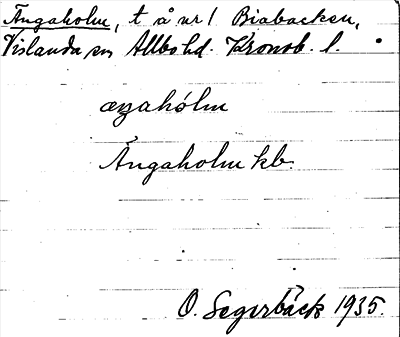 Ängaholm, t å nr 1 Biabacken,
Vislanda sn Allbo hd. Kronob. l.
æŋahólm
Ängaholm kb.
O. Segerbäck 1935.